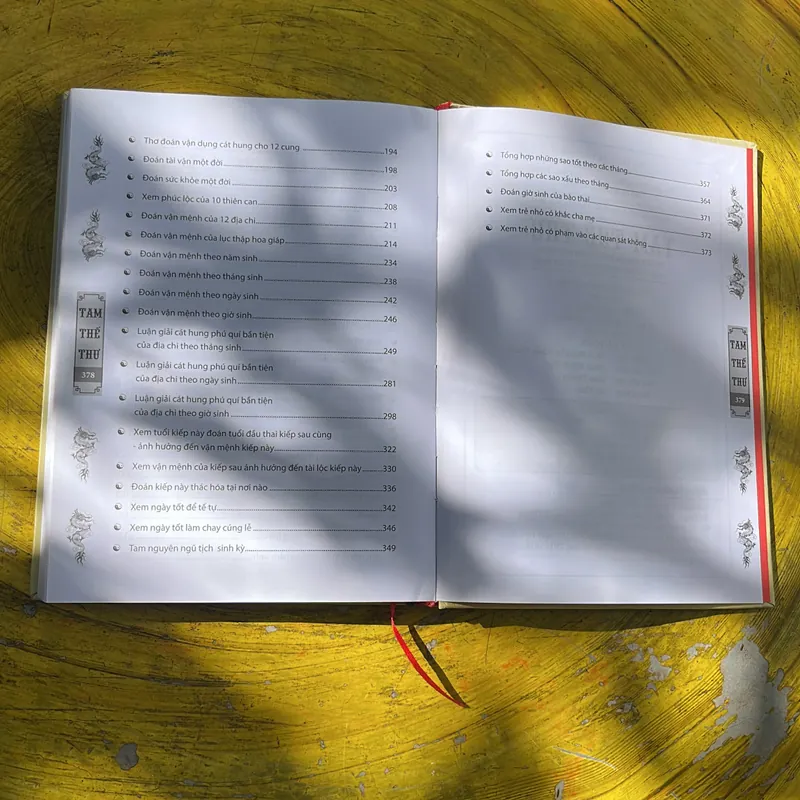 Thơ đoán vận dụng cát hung cho 12 cung 194
Đoán tài vận một đời 198
Đoán sức khỏe một đời 203
Xem phúc lộc của 10 thiên can 208
Đoán vận mệnh của 12 địa chi 211
Đoán vận mệnh của lục thập hoa giáp 214
Đoán vận mệnh theo năm sinh 234
Đoán vận mệnh theo tháng sinh 238
Đoán vận mệnh theo ngày sinh 242
Đoán vận mệnh theo giờ sinh 246
Luận giải cát hung phú quí bần tiện
của địa chi theo tháng sinh 249
Luận giải cát hung phú quí bần tiện
của địa chi theo ngày sinh 281
Luận giải cát hung phú quí bần tiện
của địa chi theo giờ sinh 298
Xem tuổi kiếp này đoán tuổi đầu thai kiếp sau cùng
- ảnh hưởng đến vận mệnh kiếp này 322
Xem vận mệnh của kiếp sau ảnh hưởng đến tài lộc kiếp này 330
Đoán kiếp này thác hóa tại nơi nào 336
Xem ngày tốt để tế tự 342
Xem ngày tốt làm chay cúng lễ 346
Tam nguyên ngũ tịch sinh kỳ 349
TAM
THẾ
THƯ
378
Tổng hợp những sao tốt theo các tháng 357
Tổng hợp các sao xấu theo tháng 364
Đoán giờ sinh của bào thai 371
Xem trẻ nhỏ có khắc cha mẹ 372
Xem trẻ nhỏ có phạm vào các quan sát không 373
TAM
THẾ
THƯ
379